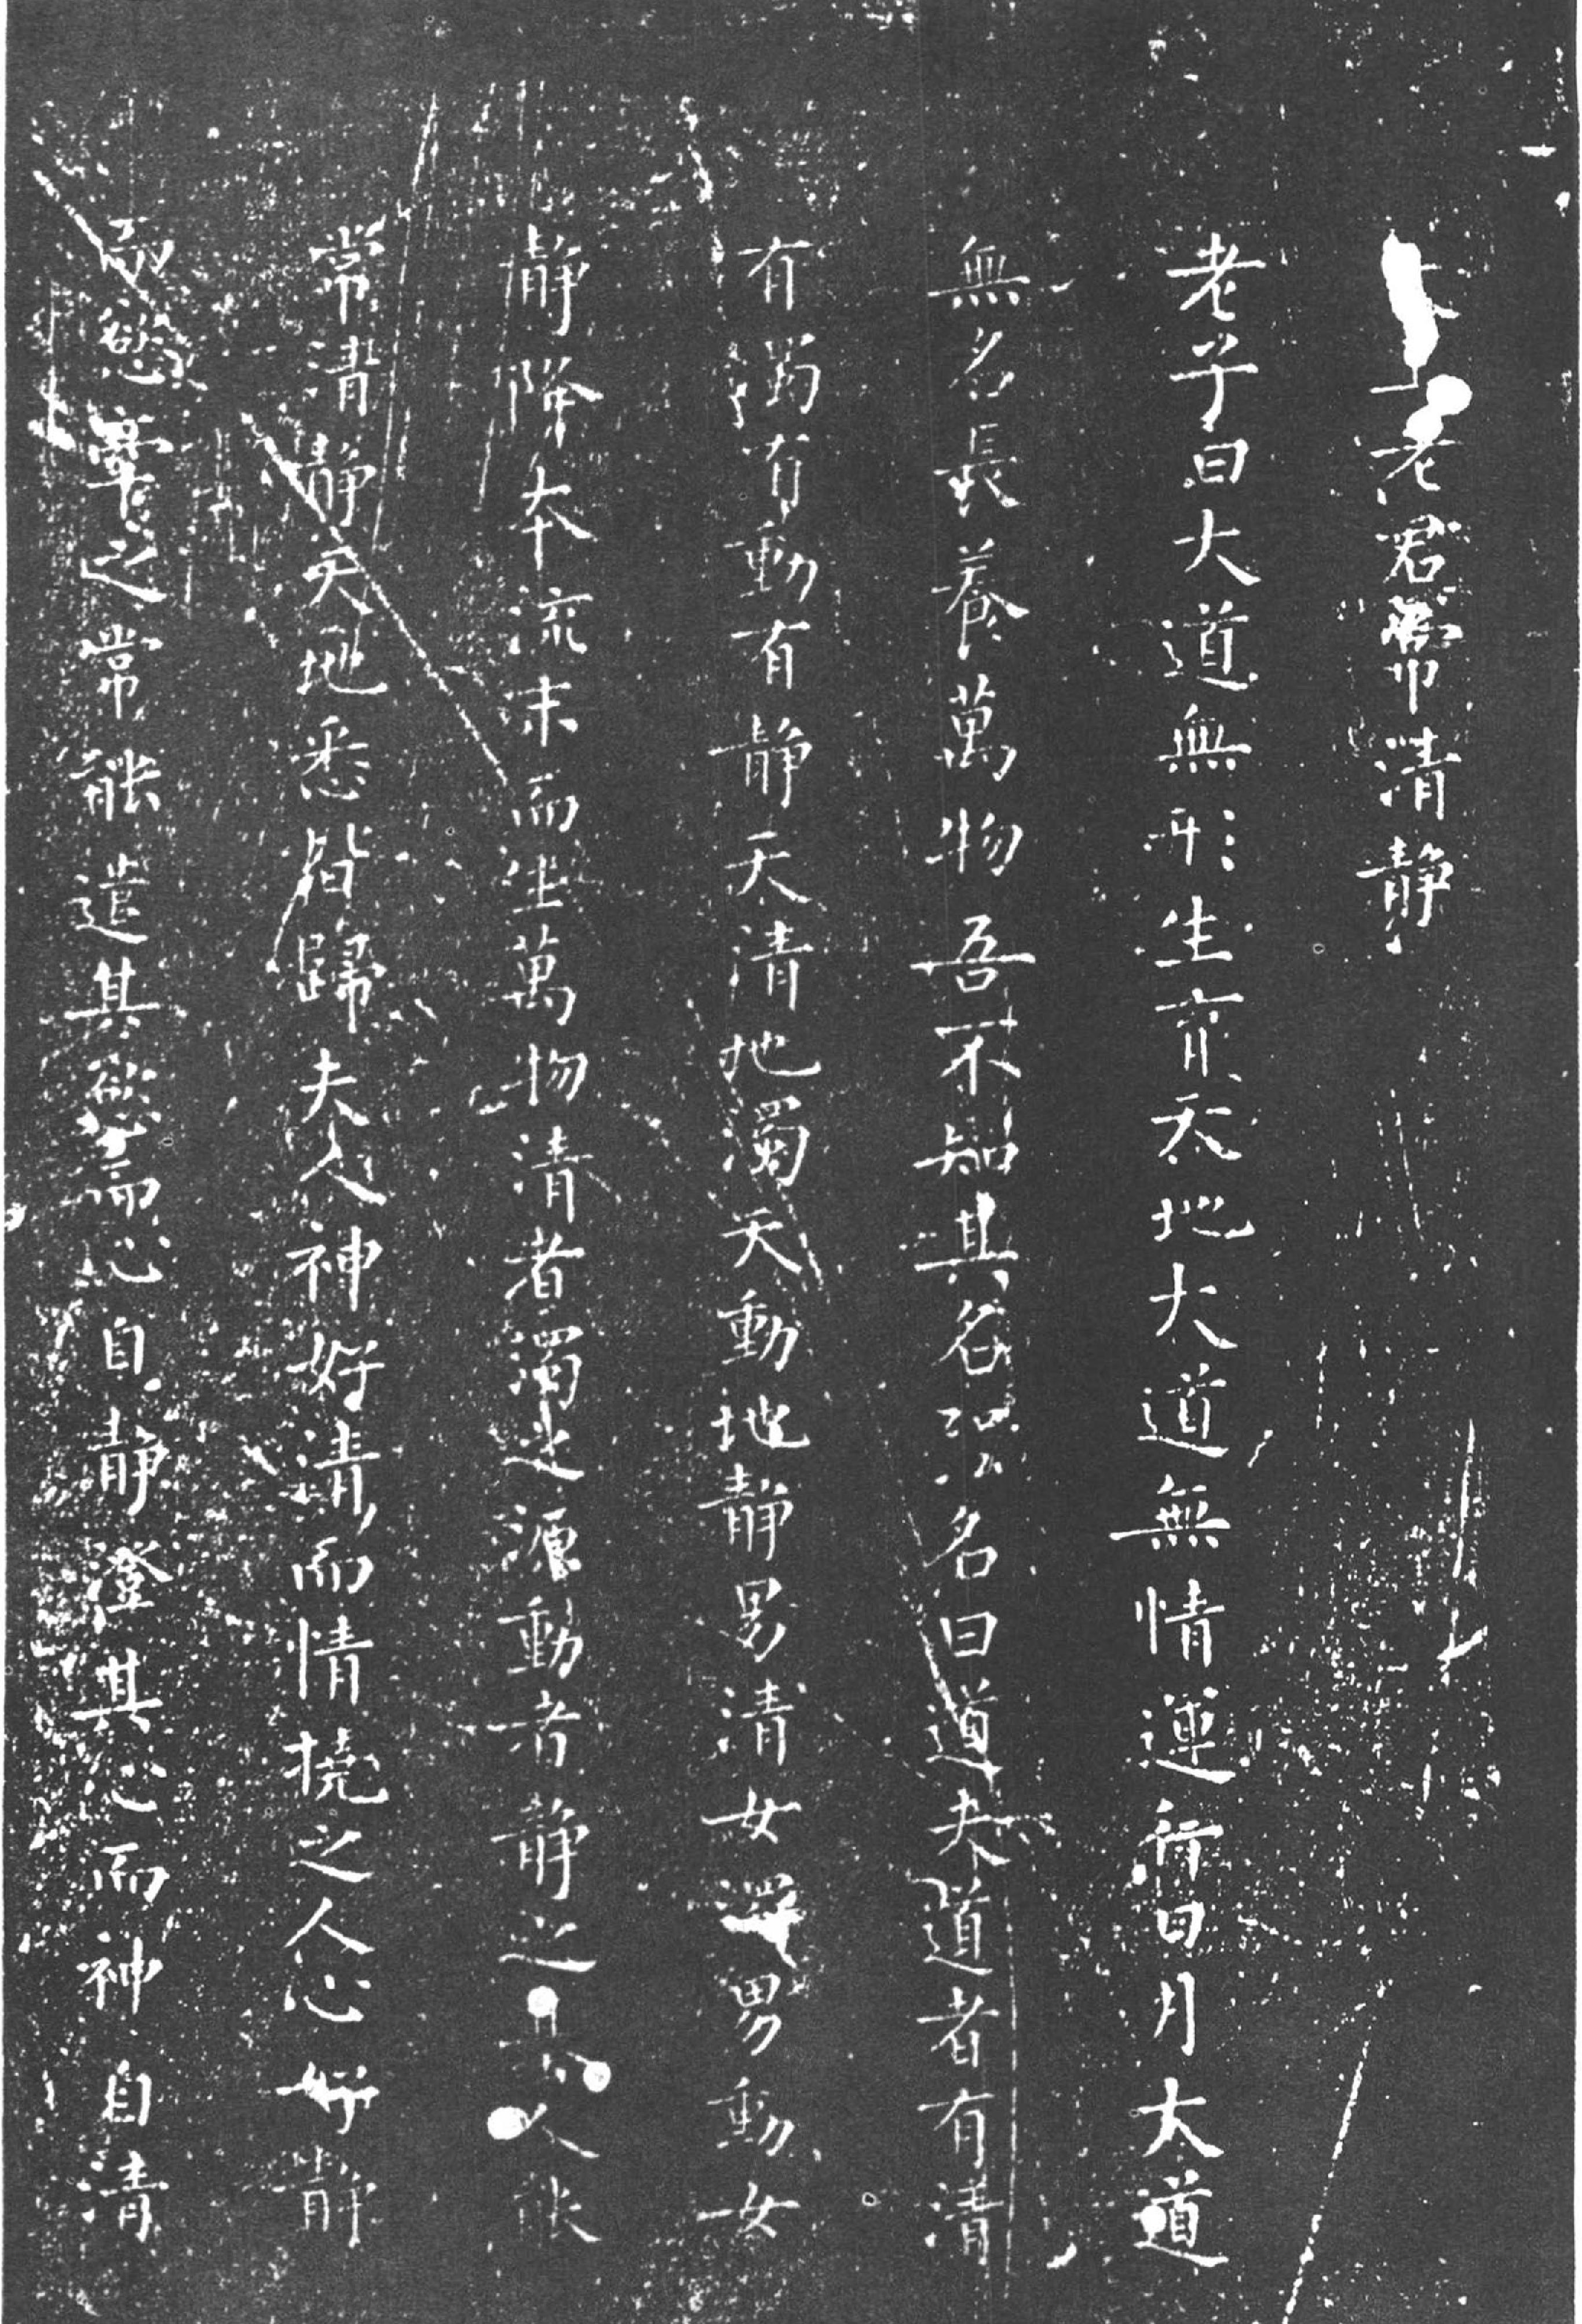 上老君常清静
老子曰大道無形生育天地大道無情運行日月大道
無名長養萬物吾不知其名強名曰道夫道者有清
有濁有動有静天清地濁天動地静男清女濁男動女
静降本流末而生萬物清者濁之源動者静之基人能
常清静天地悉皆歸夫人神好清而情撓之人心好静
而慾牽之常能遣其慾而心自静澄其心而神自清